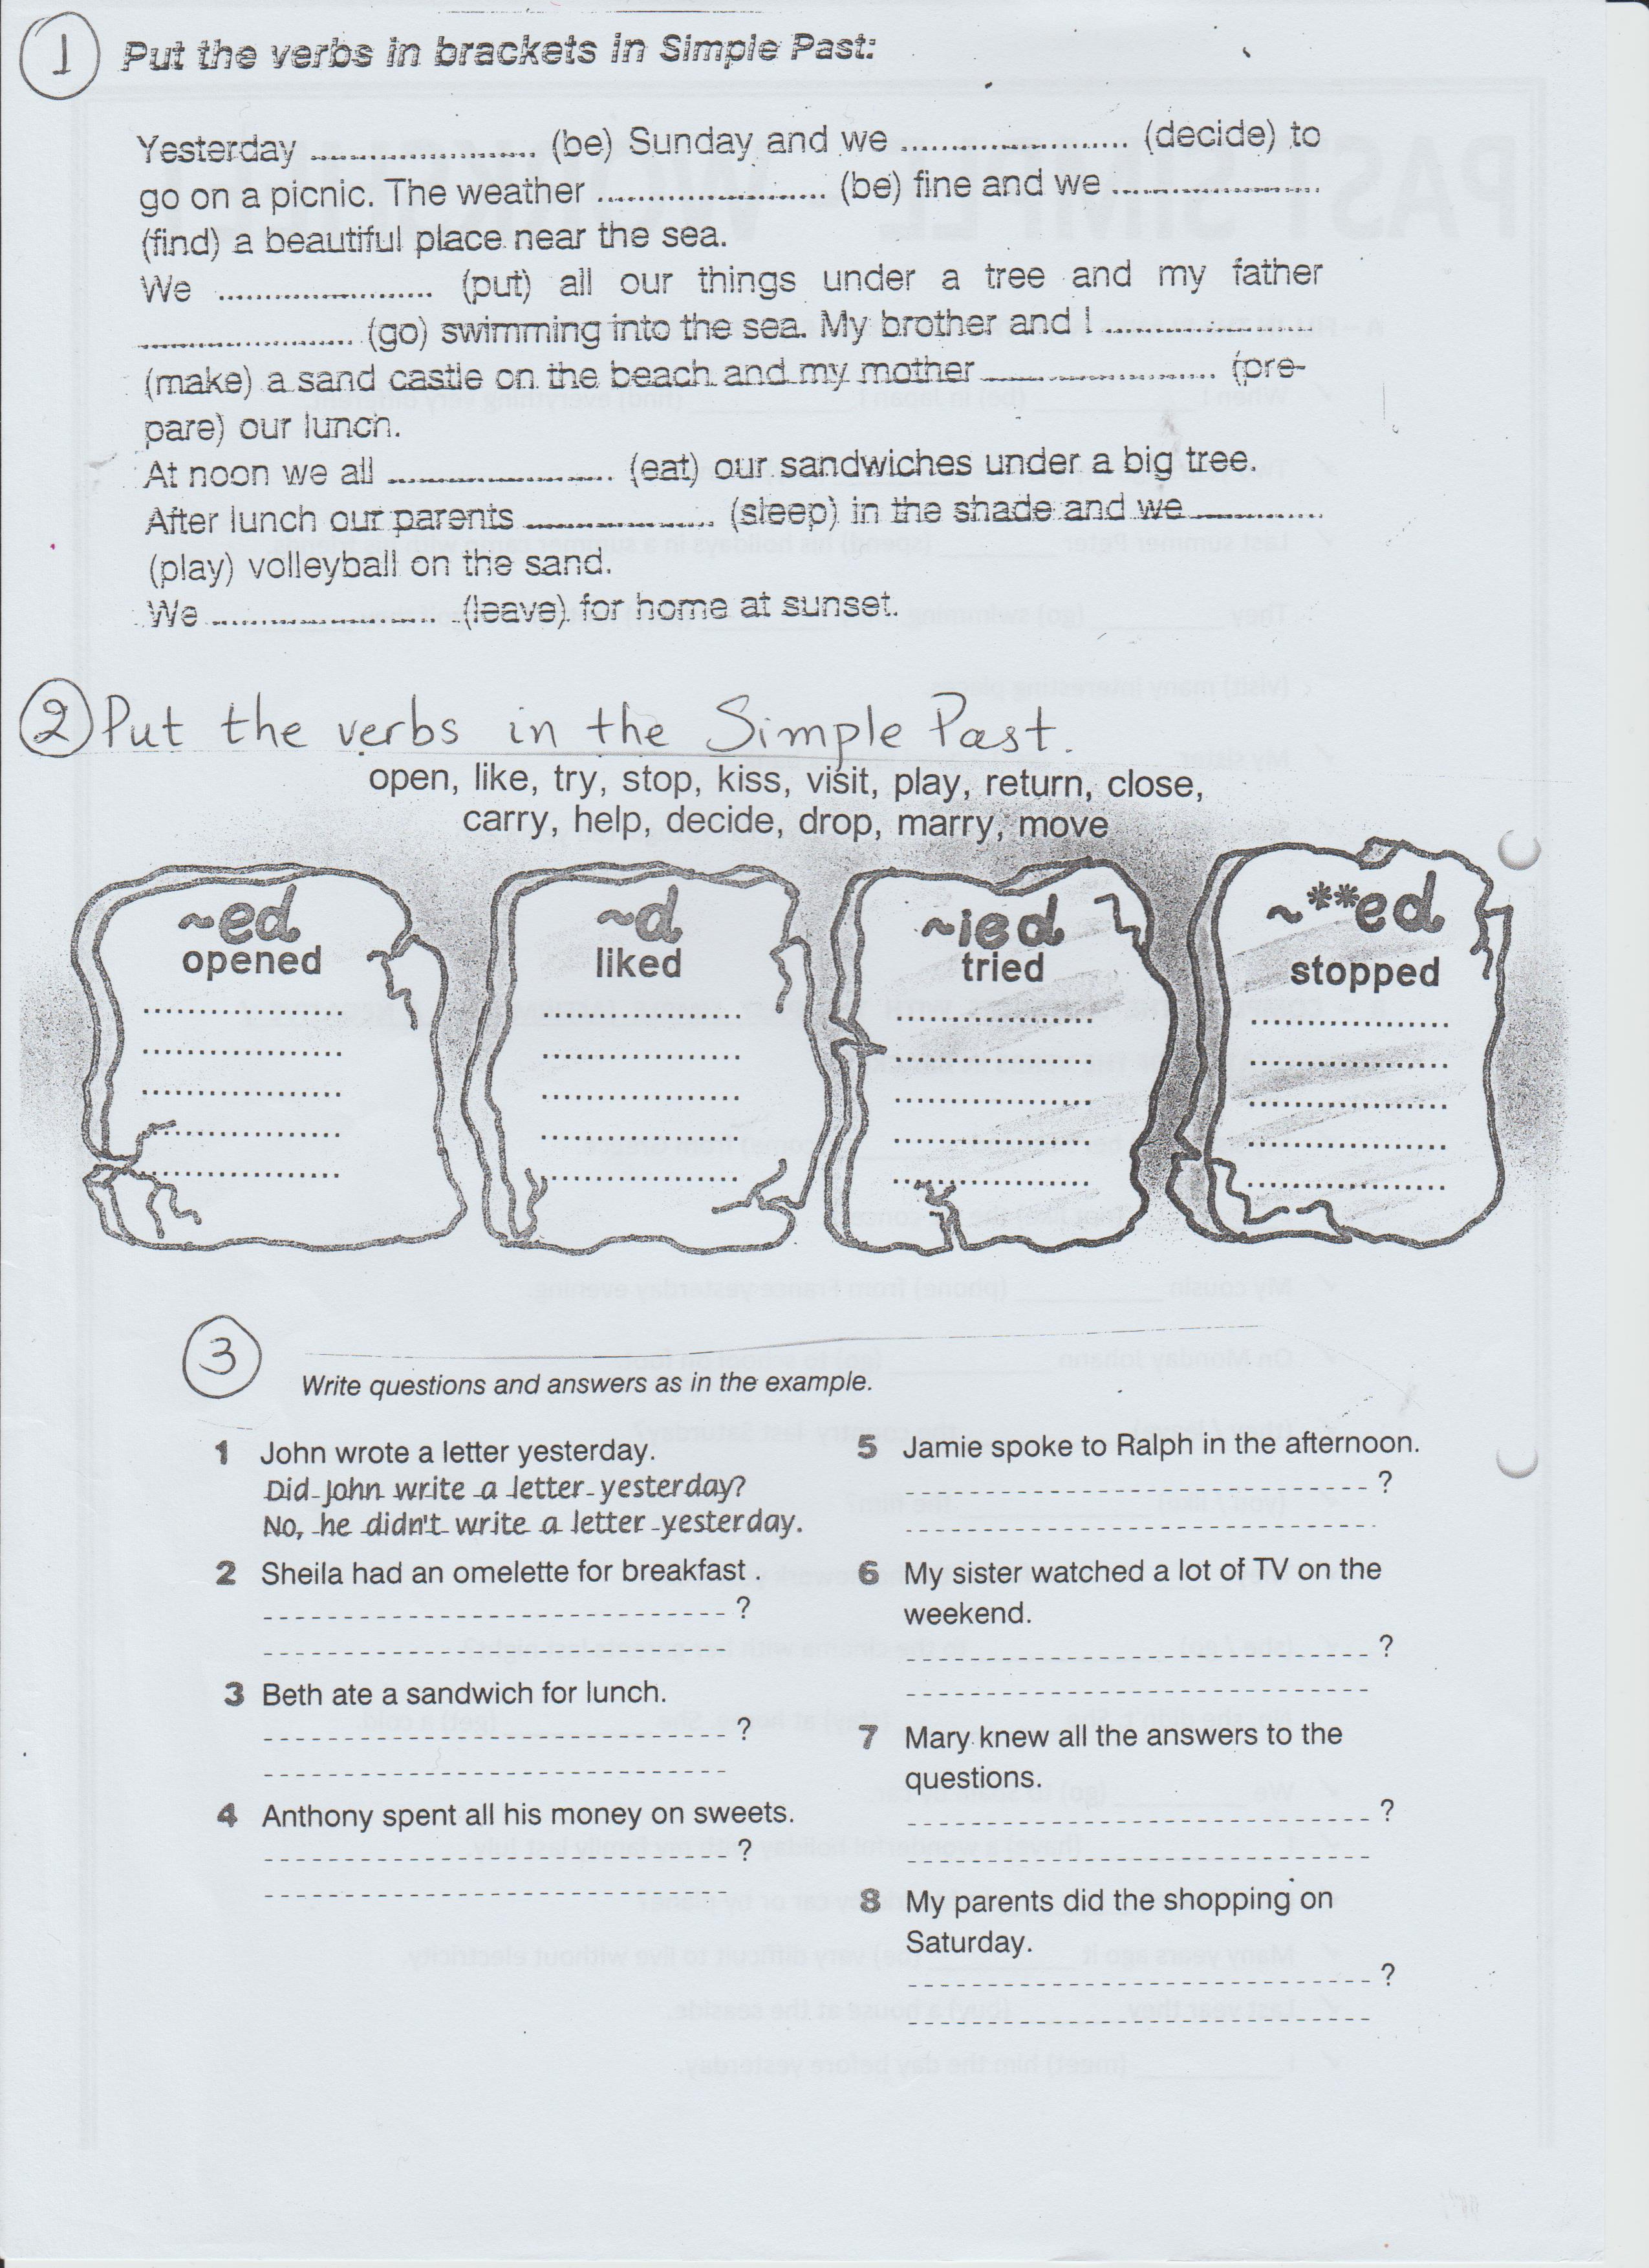 1 Put the verbs in brackets in Simple Past:
Yesterday ........................ (be) Sunday and we ........................ (decide) to
go on a picnic. The weather ........................ (be) fine and we ........................
(find) a beautiful place near the sea.
We ........................ (put) all our things under a tree and my father
........................ (go) swimming into the sea. My brother and I ........................
(make) a sand castle on the beach and my mother ........................ (pre-
pare) our lunch.
At noon we all ........................ (eat) our sandwiches under a big tree.
After lunch our parents ........................ (sleep) in the shade and we ..............
(play) volleyball on the sand.
We ........................ (leave) for home at sunset.
2 Put the verbs in the Simple Past.
open, like, try, stop, kiss, visit, play, return, close,
carry, help, decide, drop, marry, move
~ed
opened
~d
liked
~ied
tried
~**ed
stopped
3
Write questions and answers as in the example.
1 John wrote a letter yesterday.
Did John write a letter yesterday?
No, he didn't write a letter yesterday.
2 Sheila had an omelette for breakfast .
?
3 Beth ate a sandwich for lunch.
?
4 Anthony spent all his money on sweets.
?
5 Jamie spoke to Ralph in the afternoon.
?
6 My sister watched a lot of TV on the
weekend.
?
7 Mary knew all the answers to the
questions.
?
8 My parents did the shopping on
Saturday.
?